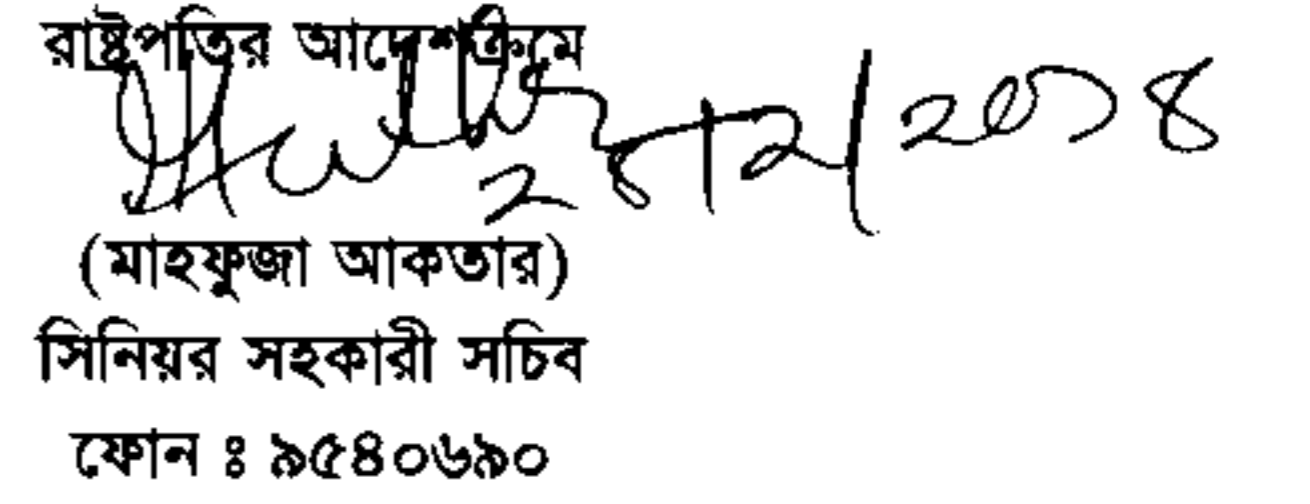 রাষ্ট্রপতির আদেশক্রমে
(মাহফুজা আকতার)
সিনিয়র সহকারী সচিব
ফোন : ৯৫৪০৬৯০